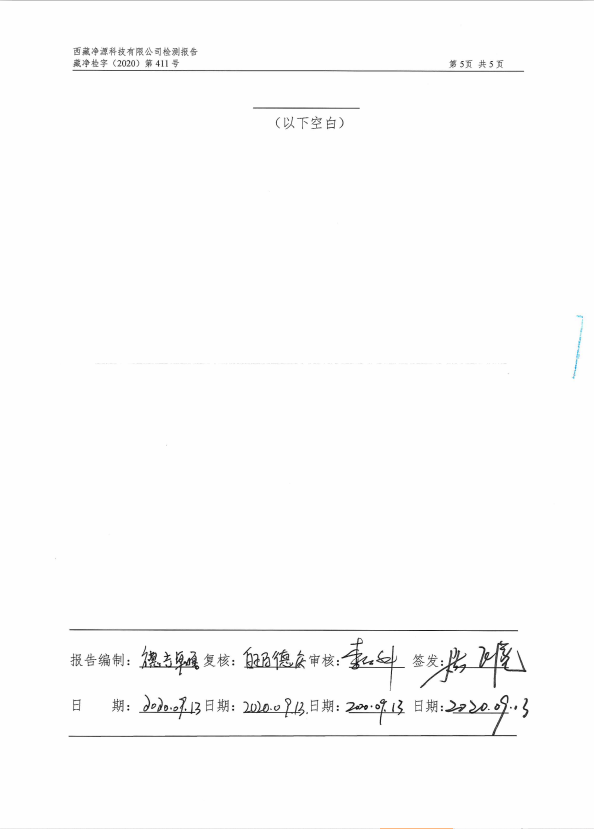 西藏净源科技有限公司检测报告
藏净检字（2020）第 411 号 第 5页 共 5 页
（以下空白）
报告编制： 德吉 复核： 审核： 李 签发：
日 期： 2020.09.13 日期： 2020.09.13 日期： 2020.09.13 日期： 2020.09.13